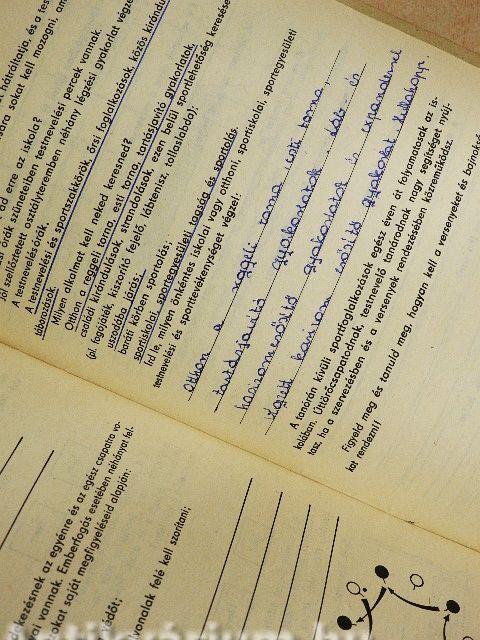 t hátráltatja, és a tes
sára sokat kell mozogni, am
ad erre az iskola?
si órák szüneteiben testnevelési percek vannak.
jól szellőztetett osztályteremben néhány légzési gyakorlat végzé
A testnevelés órák.
A testnevelési és sportszakkörök, őrsi foglalkozások, közös kirándu
táborozások.
Milyen alkalmat kell neked keresned?
Otthon a reggeli torna, esti torna, tartásjavító gyakorlatok,
családi kirándulások, strandolások, ezen belül sportlehetőség keresése
(pl. fogójáték kiszorító fejelő, lábtenisz, tollaslabda);
uszodába járás;
baráti körben sportolás;
sportiskolai, sportegyesületi tagság és sportolás.
Írd le, milyen önkéntes iskolai vagy otthoni, sportiskolai, sportegyesületi
testnevelési és sporttevékenységet végzel:
Otthon a reggeli torna, esti torna,
tartásjavító gyakorlatok,
hasizomerősítő gyakorlatok és
gyakorlat
A tanórán kívüli sportfoglalkozások egész éven át folyamatosak az is-
kolában. Úttörőcsapatodnak, testnevelő tanárodnak nagy segítséget nyúj-
tasz, ha a szervezésben és a versenyek rendezésében közreműködsz.
Figyeld meg és tanuld meg, hogyan kell a versenyeket és bajnoksá
kat rendezni!
dekezésnek az egyénre és az egész csapatra va-
yai vannak. Emberfogás esetében néhányat fel-
okat saját megfigyeléseid alapján:
édőt;
lyonalak felé kell szorítani;
antikvárium.hu